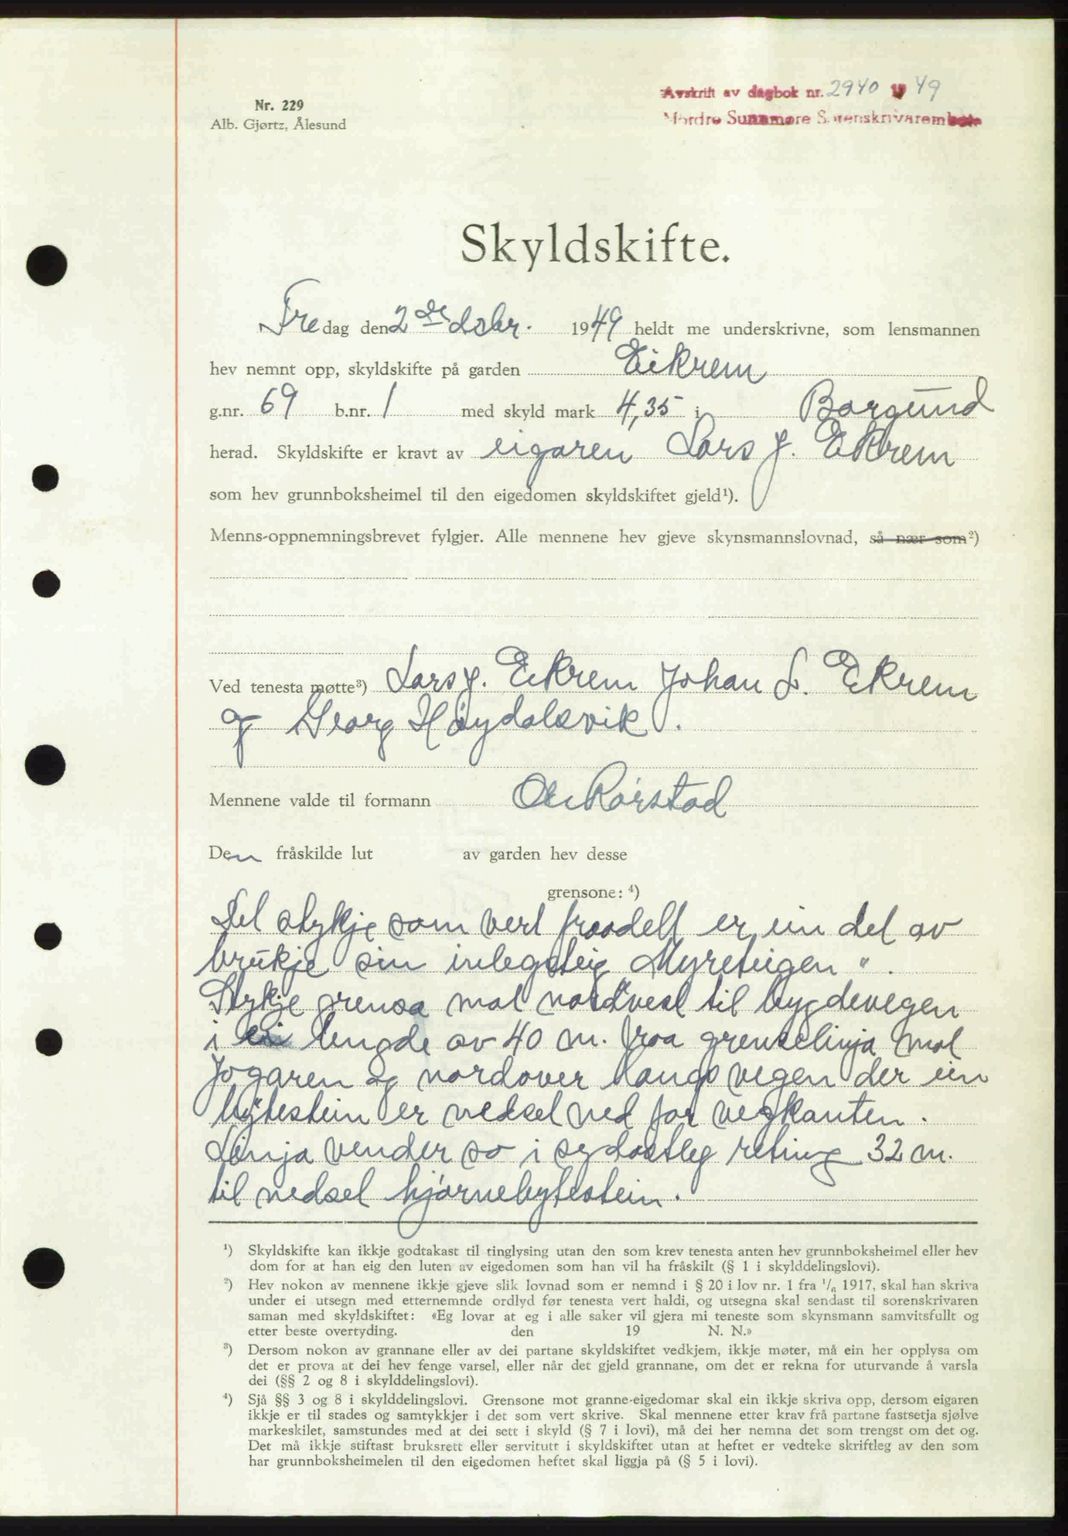 Nr. 229
Alb. Gjørtz, Ålesund
Avskrift av dagbok nr. 2940 19 49
Nordre Sunnmøre Sorenskrivarembete
Skyldskifte.
Fredag den 2 dre desbr. 1949 heldt me underskrivne, som lensmannen
hev nemnt opp, skyldskifte på garden Eikrem
g.nr. 69 b.nr. 1 med skyld mark 4,35 i Borgund
herad. Skyldskifte er kravt av eigaren Lars J. Eikrem
som hev grunnboksheimel til den eigedomen skyldskiftet gjeld¹).
Menns-oppnemningsbrevet fylgjer. Alle mennene hev gjeve skynsmannslovnad, så nær som²)
Ved tenesta møtte³) Lars J. Eikrem Johan L. Eikrem
og Georg Høydalsvik.
Mennene valde til formann Ole Rørstad
Den fråskilde lut av garden hev desse
grensone: ⁴)
Det stykje som vert fraadelt er ein del av
brukje sin inlegsteig Myreteigen".
Stykje grensa mot nordvest til bygdevegen
i lengde av 40 m. fraa grenselinja mot
Jogaren og nordover langs vegen der ein
bytestein er nedsel ned for vegkanten.
Linja vender so i sydøstleg retning 32 m.
til nedsel hjørnebytestein.
¹) Skyldskifte kan ikkje godtakast til tinglysing utan den som krev tenesta anten hev grunnboksheimel eller hev
dom for at han eig den luten av eigedomen som han vil ha fråskilt (§ 1 i skylddelingslovi).
²) Hev nokon av mennene ikkje gjeve slik lovnad som er nemnd i § 20 i lov nr. 1 fra ¹/₆ 1917, skal han skriva
under ei utsegn med etternemnde ordlyd før tenesta vert haldi, og utsegna skal sendast til sorenskrivaren
saman med skyldskiftet: «Eg lovar at eg i alle saker vil gjera mi teneste som skynsmann samvitsfullt og
etter beste overtyding. den 19 N. N.»
³) Dersom nokon av grannane eller av dei partane skyldskiftet vedkjem, ikkje møter, må ein her opplysa om
det er prova at dei hev fenge varsel, eller når det gjeld grannane, om det er rekna for uturvande å varsla
dei (§§ 2 og 8 i skylddelingslovi).
⁴) Sjå §§ 3 og 8 i skylddelingslovi. Grensone mot granne-eigedomar skal ein ikkje skriva opp, dersom eigaren
ikkje er til stades og samtykkjer i det som vert skrive. Skal mennene etter krav frå partane fastsetja sjølve
markeskilet, samstundes med at dei sett i skyld (§ 7 i lovi), må dei her nemna det som trengst om det og.
Det må ikkje stiftast bruksrett eller servitutt i skyldskiftet utan at heftet er vedteke skriftleg av den som
har grunnboksheimelen til den eigedomen heftet skal liggja på (§ 5 i lovi).